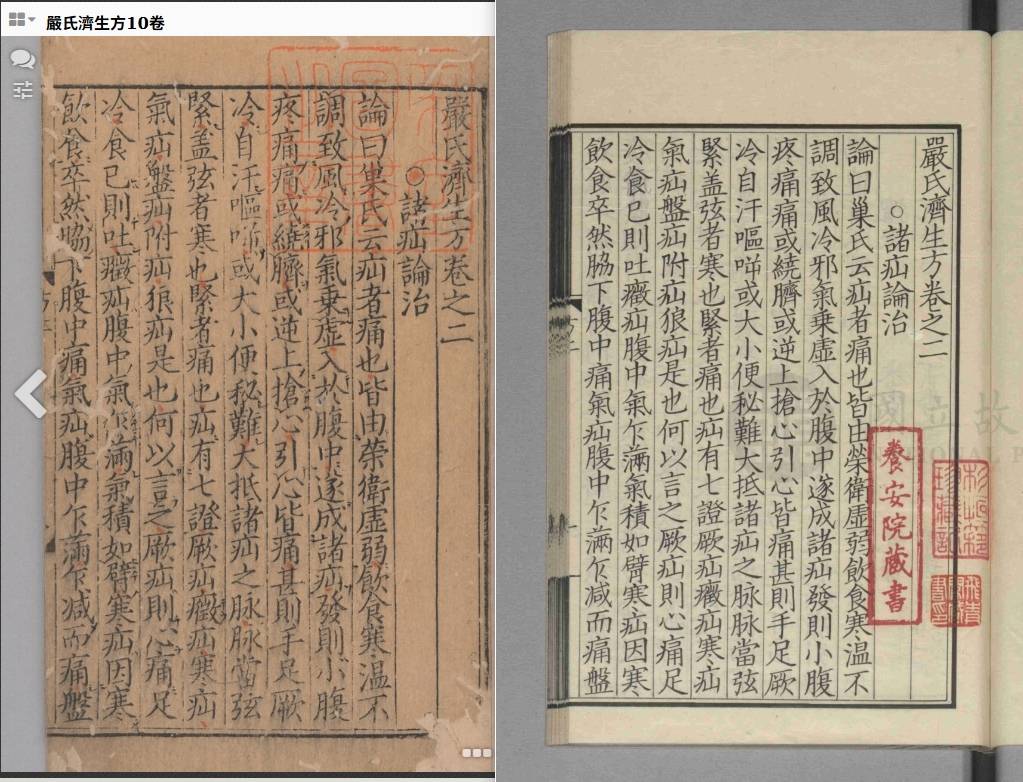 嚴氏濟生方10卷
嚴氏濟生方卷之二
○諸疝論治
論曰巢氏云疝者痛也皆由榮衛虛弱飲食寒溫不
調致風冷邪氣乗虛入於腹中遂成諸疝發則小腹
疼痛痛或繞臍或逆上搶心引心皆痛甚則手足厥
冷自汗嘔或大小便秘難大抵諸疝之脉脉當弦
緊盖弦者寒也緊者痛也疝有七證厥疝癥疝寒疝
氣疝盤疝附疝狼疝是也何以言之厥疝則心痛足
冷食已則吐癥疝腹中氣乍滿氣積如臂寒疝因寒
飲食卒然脇下腹中痛氣疝腹中乍滿乍减而痛盤
嚴氏濟生方卷之二
○諸疝論治
論曰巢氏云疝者痛也皆由榮衛虛弱飲食寒溫不
調致風冷邪氣乗虛入於腹中遂成諸疝發則小腹
疼痛痛或繞臍或逆上搶心引心皆痛甚則手足厥
冷自汗嘔或大小便秘難大抵諸疝之脉脉當弦
緊盖弦者寒也緊者痛也疝有七證厥疝癥疝寒疝
氣疝盤疝附疝狼疝是也何以言之厥疝則心痛足
冷食已則吐癥疝腹中氣乍滿氣積如臂寒疝因寒
飲食卒然脇下腹中痛氣疝腹中乍滿乍减而痛盤
養安院藏書
國立故